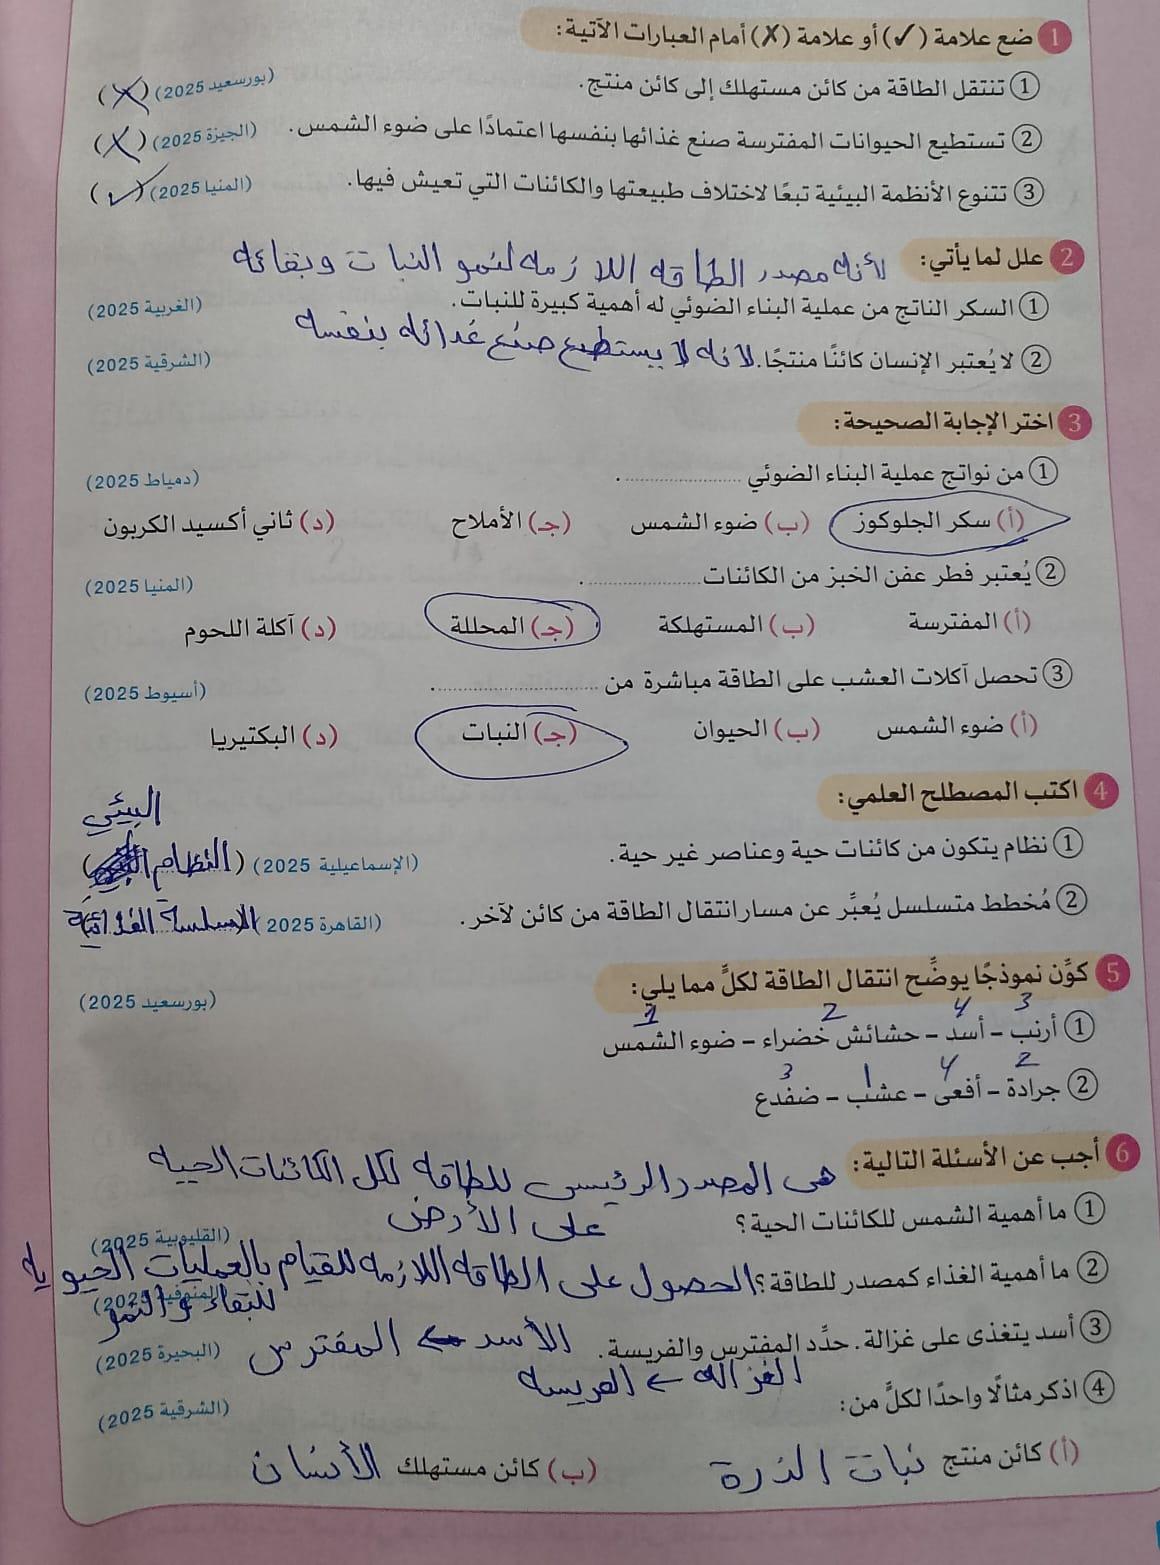 1 ضع علامة (✓) أو علامة (✗) أمام العبارات الآتية:
① تنتقل الطاقة من كائن مستهلك إلى كائن منتج. (بورسعيد 2025) (✗)
② تستطيع الحيوانات المفترسة صنع غذائها بنفسها اعتمادًا على ضوء الشمس. (الجيزة 2025) (✗)
③ تتنوع الأنظمة البيئية تبعًا لاختلاف طبيعتها والكائنات التي تعيش فيها. (المنيا 2025) (✓)
2 علل لما يأتي: لأنه مصدر الطاقه اللازمه لنمو النبات وبقائه
① السكر الناتج من عملية البناء الضوئي له أهمية كبيرة للنبات. (الغربية 2025)
② لا يُعتبر الإنسان كائنًا منتجًا. لانه لا يستطيع صنع غدائه بنفسه (الشرقية 2025)
3 اختر الإجابة الصحيحة:
① من نواتج عملية البناء الضوئي .................... (دمياط 2025)
(أ) سكر الجلوكوز (ب) ضوء الشمس (جـ) الأملاح (د) ثاني أكسيد الكربون
② يُعتبر فطر عفن الخبز من الكائنات .................... (المنيا 2025)
(أ) المفترسة (ب) المستهلكة (جـ) المحللة (د) آكلة اللحوم
③ تحصل آكلات العشب على الطاقة مباشرة من .................... (أسيوط 2025)
(أ) ضوء الشمس (ب) الحيوان (جـ) النبات (د) البكتيريا
4 اكتب المصطلح العلمي:
البيئي
① نظام يتكون من كائنات حية وعناصر غير حية. (الإسماعيلية 2025) (النظام)
② مُخطط متسلسل يُعبِّر عن مسار انتقال الطاقة من كائن لآخر. (القاهرة 2025) (السلسلة الغذائية)
5 كوِّن نموذجًا يوضِّح انتقال الطاقة لكلٍّ مما يلي: (بورسعيد 2025)
3 4 2 1
① أرنب – أسد – حشائش خضراء – ضوء الشمس
2 4 1 3
② جرادة – أفعى – عشب – ضفدع
6 أجب عن الأسئلة التالية: هى المصدر الرئيسى للطاقه لكل الكائنات الحيه
على الأرض
① ما أهمية الشمس للكائنات الحية؟ (القليوبية 2025)
② ما أهمية الغذاء كمصدر للطاقة؟ الحصول على الطاقه اللازمه للقيام بالعمليات الحيويه
للبقاء والنمو (المنوفية 2025)
③ أسد يتغذى على غزالة. حدِّد المفترس والفريسة. الأسد ← المفترس (البحيرة 2025)
الغزاله ← الفريسه
④ اذكر مثالًا واحدًا لكلٍّ من: (الشرقية 2025)
(أ) كائن منتج نبات الذرة (ب) كائن مستهلك الأنسان